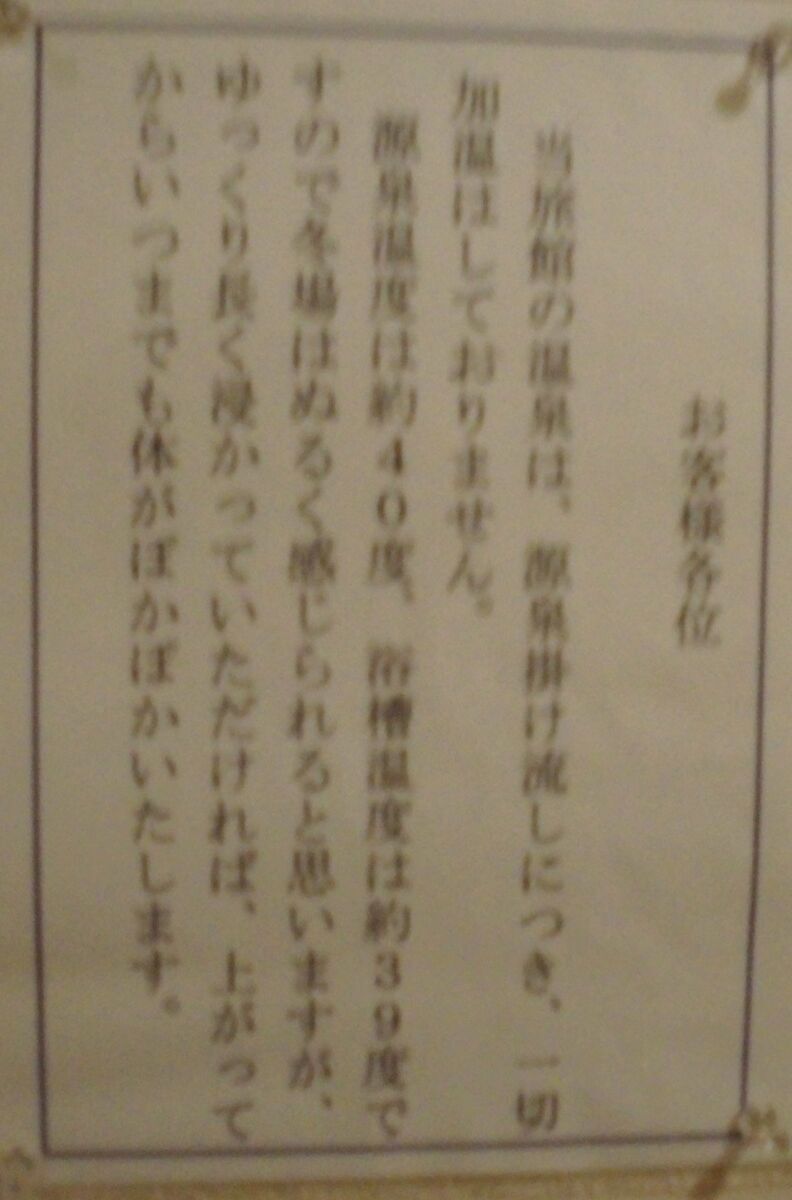 お客様各位
当旅館の温泉は、源泉掛け流しにつき、一切
加温はしておりません。
源泉温度は約40度、浴槽温度は約39度で
すので冬場はぬるく感じられると思いますが、
ゆっくり長く浸かっていただければ、上がって
からいつまでも体がぽかぽかいたします。